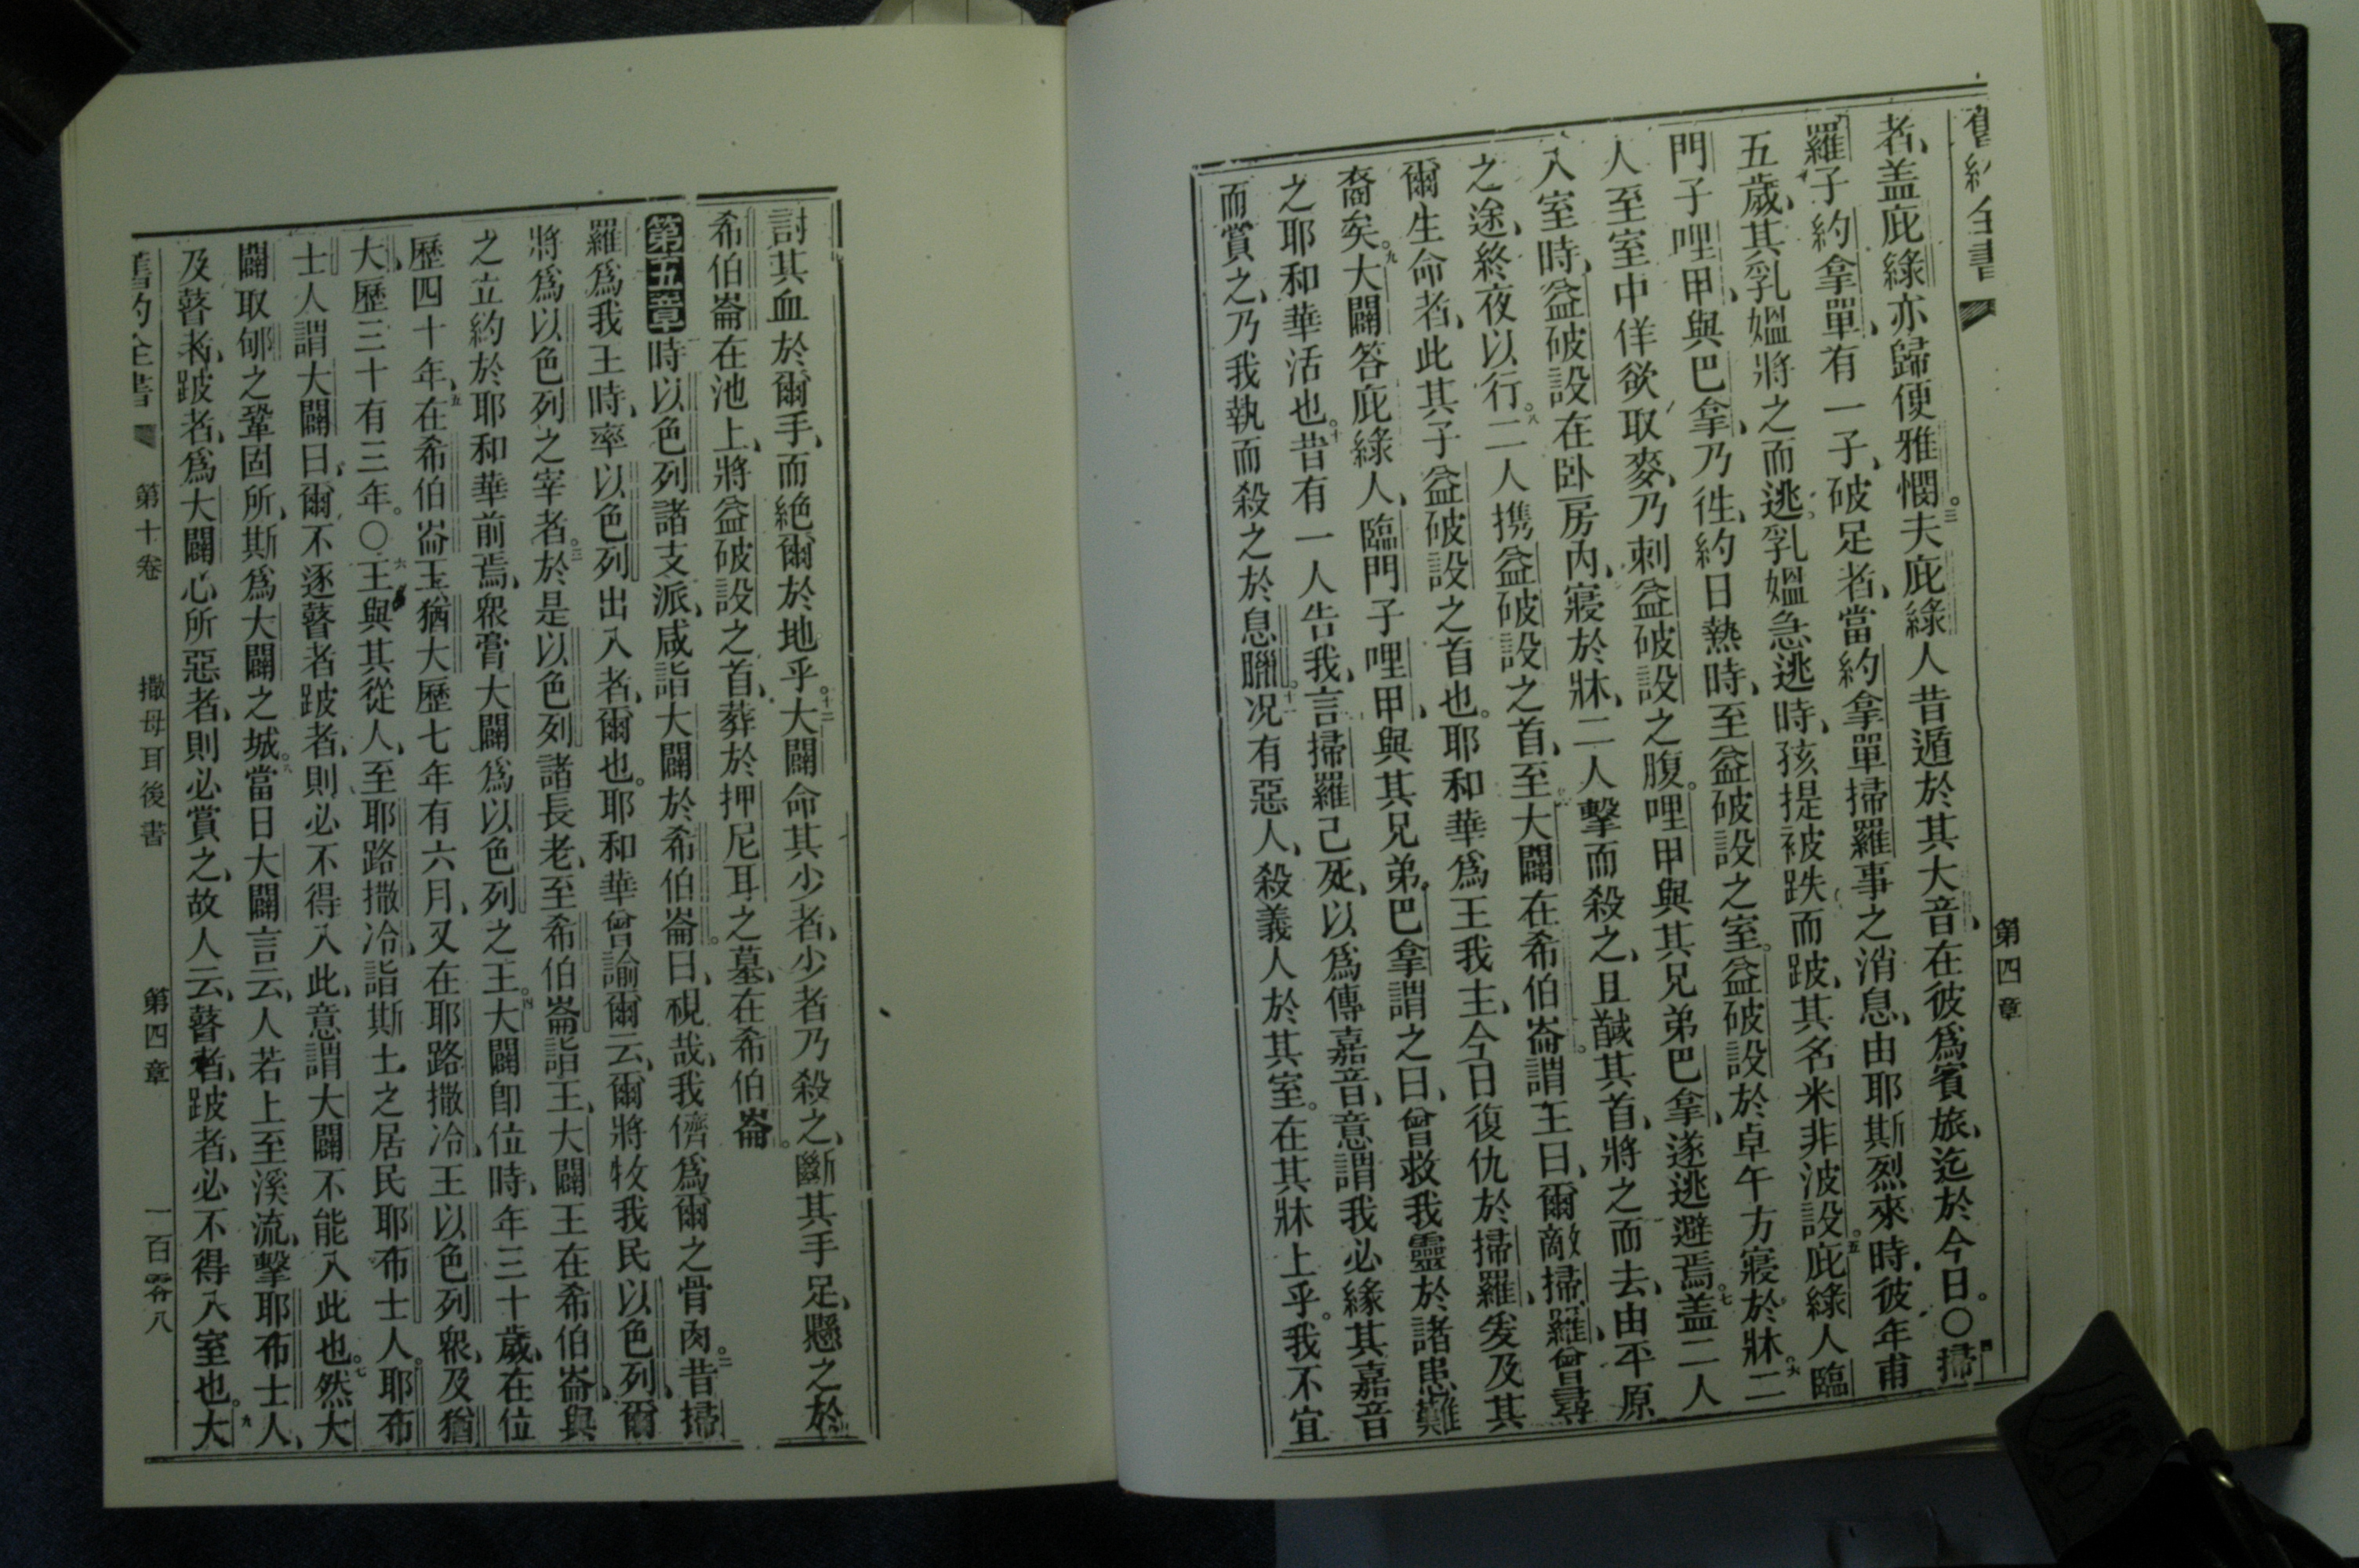 舊約全書
第四章
者、盖庇綠亦歸便雅憫。三夫庇綠人昔遁於其大音、在彼爲賓旅、迄於今日。〇四掃
羅子約拿單、有一子、破足者、當約拿單掃羅事之消息、由耶斯烈來時、彼年甫
五歲、其乳媼將之而逃。乳媼急逃時、孩提被跌而跛、其名米非波設。五庇綠人臨
門子哩甲、與巴拿、乃徃、約日熱時、至益破設之室。益破設於卓午方寢於牀。六二
人至室中佯欲取麥、乃刺益破設之腹。哩甲與其兄弟巴拿、遂逃避焉。七盖二人
入室時、益破設在卧房內、寢於牀、二人擊而殺之、且馘其首、將之而去、由平原
之途、終夜以行。八二人携益破設之首、至大闢在希伯崙。謂王曰、爾敵掃羅、曾尋
爾生命者、此其子益破設之首也。耶和華爲王我主、今日復仇於掃羅、爰及其
裔矣。九大闢答庇綠人、臨門子哩甲、與其兄弟巴拿謂之曰、曾救我靈於諸患難
之耶和華活也。十昔有一人告我、言掃羅己死、以爲傳嘉音、意謂我必緣其嘉音
而賞之、乃我執而殺之於息臘。十一况有惡人、殺義人於其室。在其牀上乎。我不宜
討其血於爾手、而絕爾於地乎。十二大闢命其少者、少者乃殺之、斷其手足、懸之於
希伯崙在池上、將益破設之首、葬於押尼耳之墓、在希伯崙。
第五章時以色列諸支派、咸詣大闢於希伯崙。曰、視哉、我儕爲爾之骨肉。二昔掃
羅爲我王時、率以色列出入者、爾也。耶和華曾諭爾云、爾將牧我民以色列、爾
將爲以色列之宰者。三於是以色列諸長老、至希伯崙詣王、大闢王在希伯崙與
之立約於耶和華前焉、衆膏大闢爲以色列之王。四大闢卽位時、年三十歲、在位
歷四十年、五在希伯崙王猶大歷七年有六月、又在耶路撒冷、王以色列衆、及猶
大、歷三十有三年。〇六王與其從人、至耶路撒冷、詣斯土之居民耶布士人。耶布
士人謂大闢曰、爾不逐瞽者跛者、則必不得入此、意謂大闢不能入此也。七然大
闢取郇之鞏固所、斯爲大闢之城。八當日大闢言云、人若上至溪流、擊耶布士人、
及瞽者、跛者、爲大闢心所惡者、則必賞之、故人云、瞽者、跛者、必不得入室也。九大
舊約全書
第十卷
撒母耳後書
第四章
一百零八